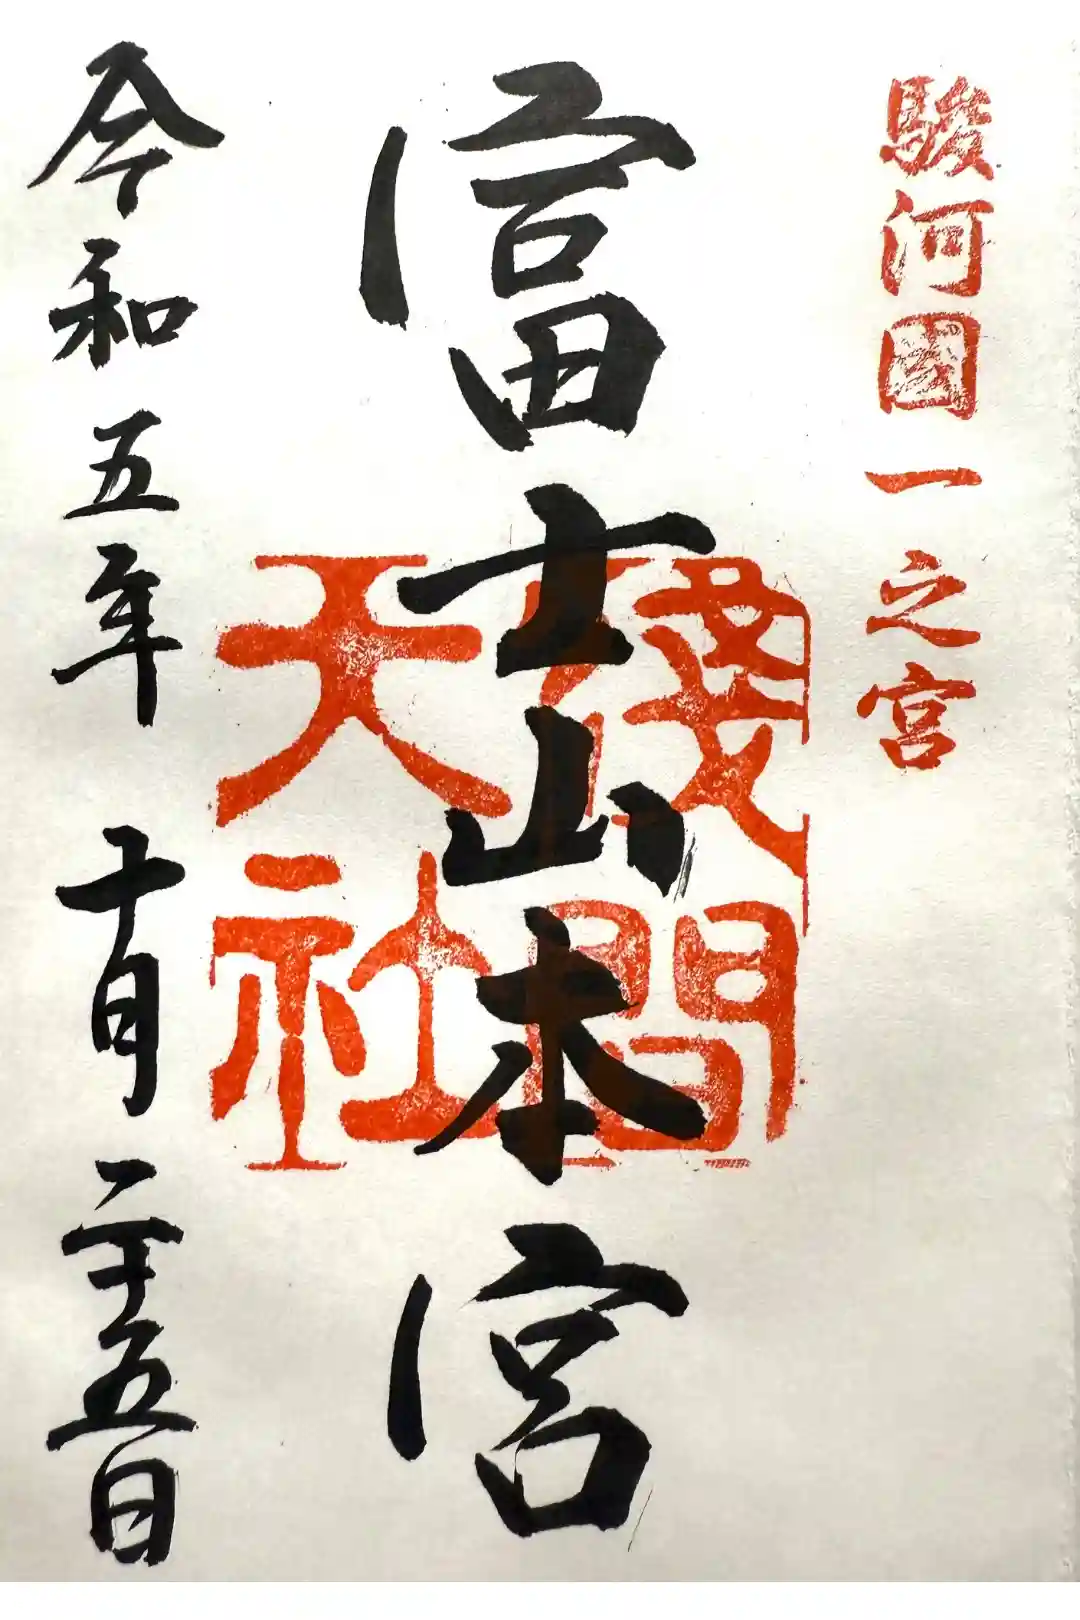 駿河國一之宮
富士山本宮
淺間
大社
令和五年十月二十五日